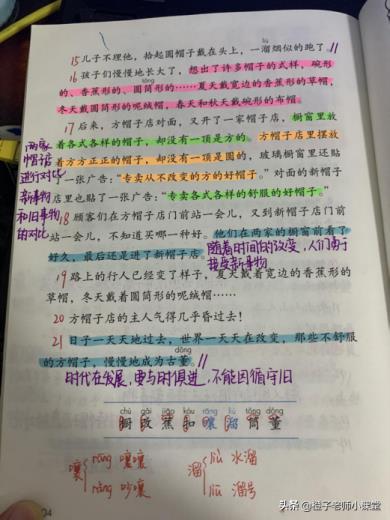 liù
15 儿子不理他，拾起圆帽子戴在头上，一溜烟似的跑了。
16 孩子们慢慢地长大了，想出了许多帽子的式样，碗形
tǒng
的、香蕉形的、圆筒形的……夏天戴宽边的香蕉形的草帽，
冬天戴圆筒形的呢绒帽，春天和秋天戴碗形的布帽。
17 后来，方帽子店对面，又开了一家帽子店，橱窗里放
着各式各样的帽子，却没有一顶是方的。方帽子店里摆放
着方方正正的帽子，却没有一顶是圆的，玻璃橱窗里还贴
了一张广告：“专卖从不改变的方的好帽子。”对面的新帽子
店里也贴了一张广告：“专卖各式各样的舒服的好帽子。”
两家
帽店
进行对比
新事物
和旧事物
的对比
18 顾客们在方帽子店门前站一会儿，又到新帽子店门前
站一会儿，不知道买哪一种好。他们在两家的橱窗前看了
好久，最后还是进了新帽子店。
随着时间的改变，人们勇于
接受新事物
19 路上的行人已经变了样子，夏天戴着宽边的香蕉形的
草帽，冬天戴着圆筒形的呢绒帽……
20 方帽子店的主人气得几乎昏过去！
21 日子一天天地过去，世界一天天在改变，那些不舒服
dǒng
的方帽子，慢慢地成为古董。
时代在发展，要与时俱进，不能因循守旧
chú gǎi jiāo kòu rāng liù tǒng dǒng
橱 改 蕉 扣 嚷 溜 筒 董
嚷 rāng 嚷嚷
rǎng 吵嚷
溜 liù 水溜
liū 溜号
头条 @橙子老师小课堂